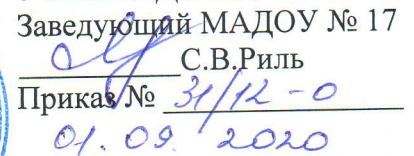 Заведующий МАДОУ № 17
С.В.Риль
Приказ № 31/12-о
01.09.2020